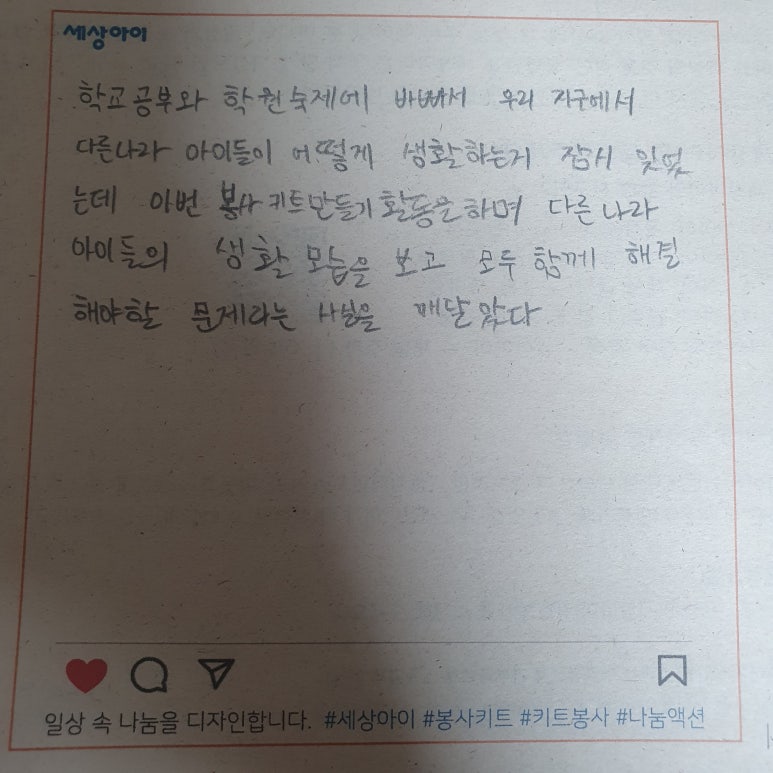 세상아이
학교공부와 학원숙제에 바빠서 우리 지구에서
다른나라 아이들이 어떻게 생활하는지 잠시 잊었
는데 이번 봉사키트만들기 활동을 하며 다른 나라
아이들의 생활 모습을 보고 모두 함께 해결
해야할 문제라는 사실을 깨달았다
일상 속 나눔을 디자인합니다. #세상아이 #봉사키트 #키트봉사 #나눔액션